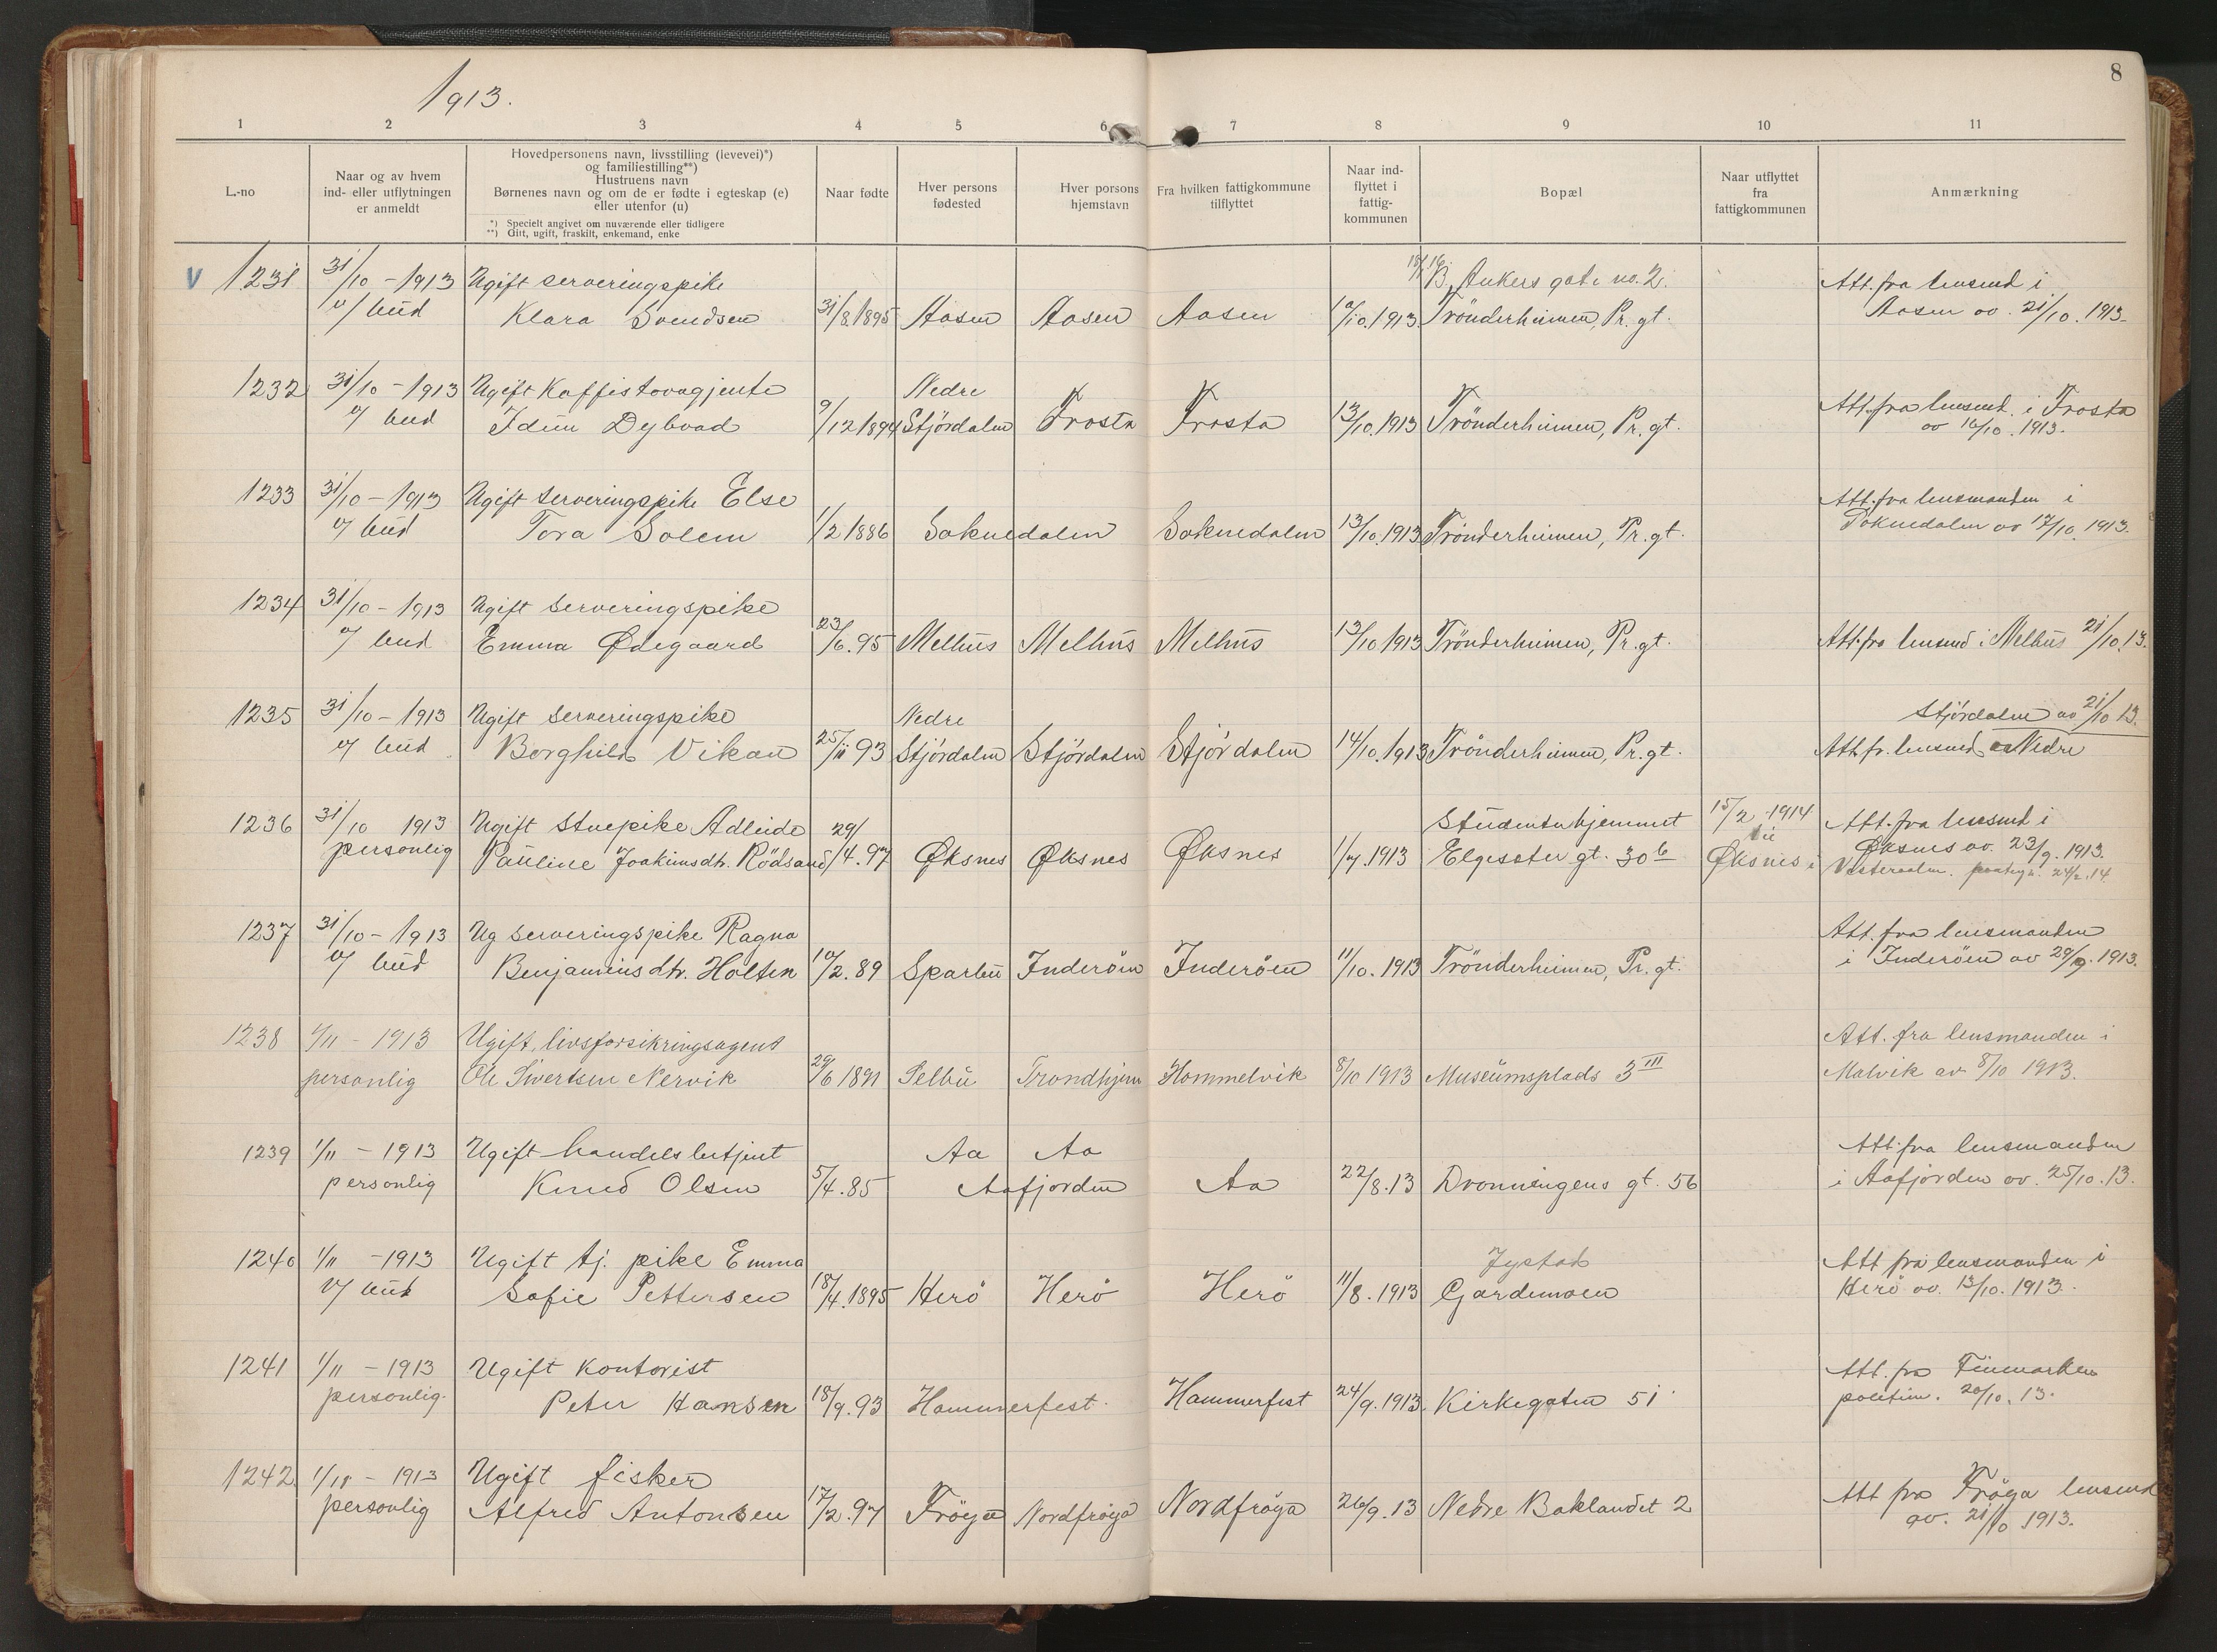 1913.
8
1 2 3 4 5 6 7 8 9 10 11
L.-no
Naar og av hvem
ind- eller utflytningen
er anmeldt
Hovedpersonens navn, livsstilling (levevei)*)
og familiestilling**)
Hustruens navn
Børnenes navn og om de er fødte i egteskap (e)
eller utenfor (u)
*) Specielt angivet om nuværende eller tidligere
**) Gift, ugift, fraskilt, enkemand, enke
Naar fødte
Hver persons
fødested
Hver persons
hjemstavn
Fra hvilken fattigkommune
tilflyttet
Naar ind-
flyttet i
fattig-
kommunen
Bopæl
Naar utflyttet
fra
fattigkommunen
Anmærkning
V 1231 31/10 - 1913 Ugift serveringspike B. Ankers gate no. 2. Att. fra lensmd i
v/ bud Klara Svendsen 31/8 1895 Aasen Aasen Aasen 10/10.1913 Trönderheimen, Pr. gt. Aasen av. 21/10. 1913.
1232 31/10 - 1913 Ugift Kaffistovagjente Nedre Att. fra lensmd. i Frosta
v/ bud Idun Dybvad 9/12 1894 Stjördalen Frosta Frosta 13/10.1913 Trönderheimen, Pr. gt. av 16/10. 1913.
1233 31/10 - 1913 Ugift serveringspike Else Att. fra lensmanden i
v/ bud Tora Solem 1/2 1886 Soknedalen Soknedalen 13/10.1913 Trönderheimen, Pr. gt. Soknedalen av 17/10. 1913.
1234 31/10 - 1913 Ugift serveringspike
v/ bud Emma Ødegaard 23/6.95 Melhus Melhus Melhus 13/10 1913 Trönderheimen, Pr. gt. Att. fra lensmd i Melhus 21/10.13.
1235 31/10 - 1913 Ugift serveringspike Nedre Stjördalen av 21/10 13.
v/ bud Borghild Vikan 25/11 93 Stjördalen Stjördalen Stjördalen 14/10.1913 Trönderheimen, Pr. gt. Att fr. lensmd Nedre
1236 31/10 1913 Ugift stuepike Adleide 29/ Studenterhjemmet 15/2 1914 Att. fra lensmd i
personlig Pauline Joakimsdtr. Rödsand /4.97 Øksnes Øksnes Øksnes 1/7.1913 Elgesæter gt. 30 b til Øksnes i Øksnes av. 23/9. 1913.
Vesteraalen. 24/2.14
1237 31/10 - 1913 Ug serveringspike Ragna Att. fra lensmanden
v/ bud Benjaminsdtr. Holten 10/2.89 Sparbu Inderöen Inderöen 11/10.1913 Trönderheimen, Pr. gt. i Inderöen av 29/9. 1913.
1238 1/11 - 1913 Ugift, livsforsikringsagent Att. fra lensmanden i
personlig Ole Sivertsen Nervik 29/6 1891 Selbu Trondhjem Hommelvik 8/10 1913 Museumsplads 3 III Malvik av 8/10 1913.
1239 1/11 - 1913 Ugift handelsbetjent Aa Aa Att. fra lensmanden
personlig Knud Olsen 5/4.85 Aafjorden Aa 22/8.13 Dronningens gt. 56 i Aafjorden av. 25/10.13.
1240 1/11 - 1913 Ugift tj. pike Emma Jystad Att fra lensmanden i
v/ bud Sofie Pettersen 18/4.1895 Herö Herö Herö 11/8.1913 Gardemoen Herö av. 13/10. 1913.
1241 1/11 - 1913 Ugift kontorist Att. fra Finmarken
personlig. Peter Hansen 18/9.93 Hammerfest. Hammerfest 24/9.1913. Kirkegaten 51 politim. 20/10.13.
1242 1/11 - 1913 Ugift fisker Att fra Fröya lensmd
personlig Alfred Antonsen 17/2.97 Fröya Nordfröya Nordfröya 26/9.13 Nedre Baklandet 2 av. 21/10 1913.